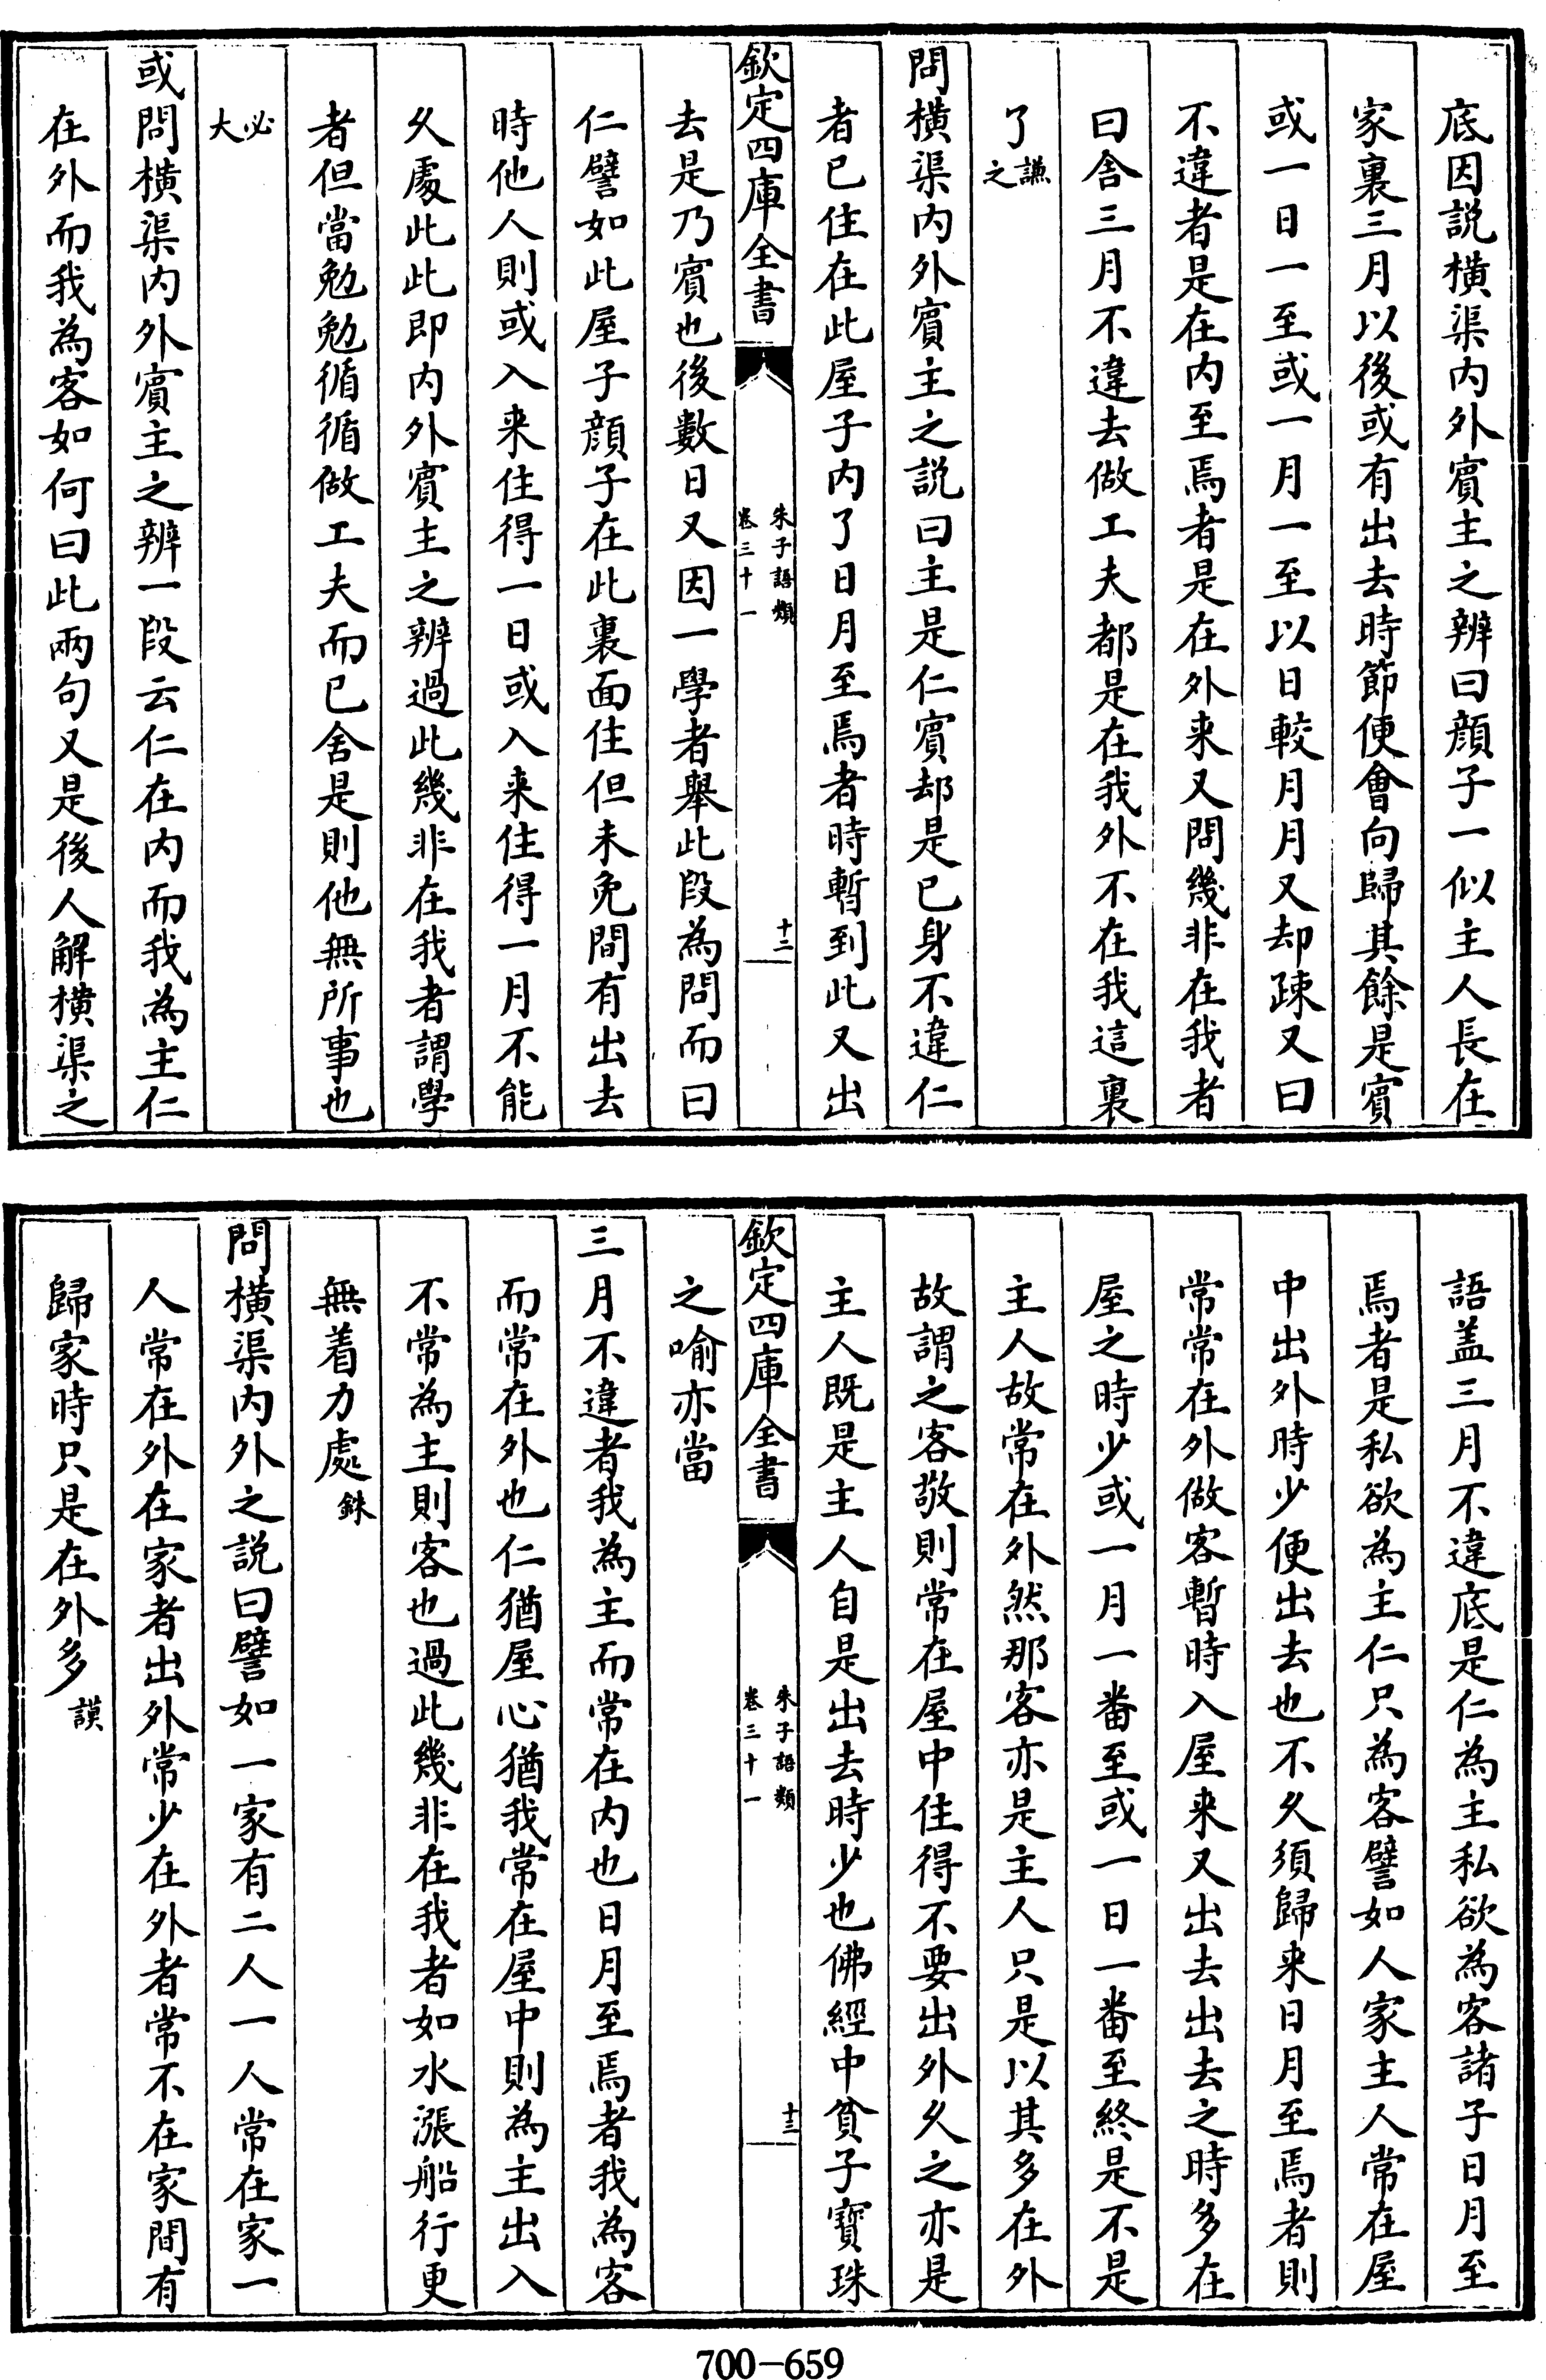 底因説橫渠内外賔主之辨曰顔子一似主人長在
家裏三月以後或有出去時節便會向歸其餘是賔
或一日一至或一月一至以日較月月又却疎又曰
不違者是在内至焉者是在外来又問幾非在我者
曰舍三月不違去做工夫都是在我外不在我這裏
了謙之
問橫渠内外賔主之説曰主是仁賔却是已身不違仁
者已住在此屋子内了日月至焉者時暫到此又出
欽定四庫全書
朱子語類
卷三十一
十二
去是乃賔也後數日又因一學者舉此段為問而曰
仁譬如此屋子顔子在此裏面住但未免間有出去
時他人則或入来住得一日或入来住得一月不能
久處此此即内外賔主之辨過此幾非在我者謂學
者但當勉勉循循做工夫而已舍是則他無所事也
必大
或問橫渠内外賔主之辨一段云仁在内而我為主仁
在外而我為客如何曰此兩句又是後人解橫渠之
語盖三月不違底是仁為主私欲為客諸子日月至
焉者是私欲為主仁只為客譬如人家主人常在屋
中出外時少便出去也不久須歸来日月至焉者則
常常在外做客暫時入屋来又出去出去之時多在
屋之時少或一月一番至或一日一番至終是不是
主人故常在外然那客亦是主人只是以其多在外
故謂之客敬則常在屋中住得不要出外久之亦是
主人既是主人自是出去時少也佛經中貧子寶珠
欽定四庫全書
朱子語類
卷三十一
十三
之喻亦當
三月不違者我為主而常在内也日月至焉者我為客
而常在外也仁猶屋心猶我常在屋中則為主出入
不常為主則客也過此幾非在我者如水漲船行更
無着力處銖
問橫渠内外之説曰譬如一家有二人一人常在家一
人常在外在家者出外常少在外者常不在家間有
歸家時只是在外多謨
700-659